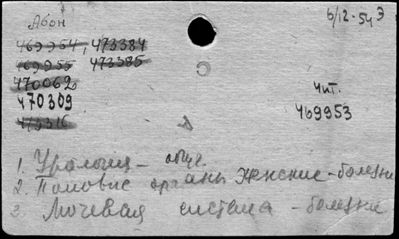 Абон
6/12-54 Э
469954, 473384
469955 473385
470062
470309
473316
Чит.
469953
1. Урология - общ.
2. Половые органы женские - болезни
3. Мочевая система - болезни